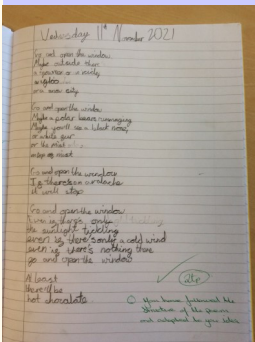 Wednesday 11th November 2021
Go and open the window
Maybe outside there
a
igloo
or a snow city.
Go and open the window
Maybe a polar bears rummaging
Maybe you'll see a black nose,
or white fur
or the mist
mist
Go and open the window
If there's an avalache
it will stop
Go and open the window
Even if there's only
the sunlight tickling
even if there's only a cold wind
even if there's nothing there
go and open the window
At least
there'll be
hot chocolate
You have followed the
structure of the poem
and adapted to your idea